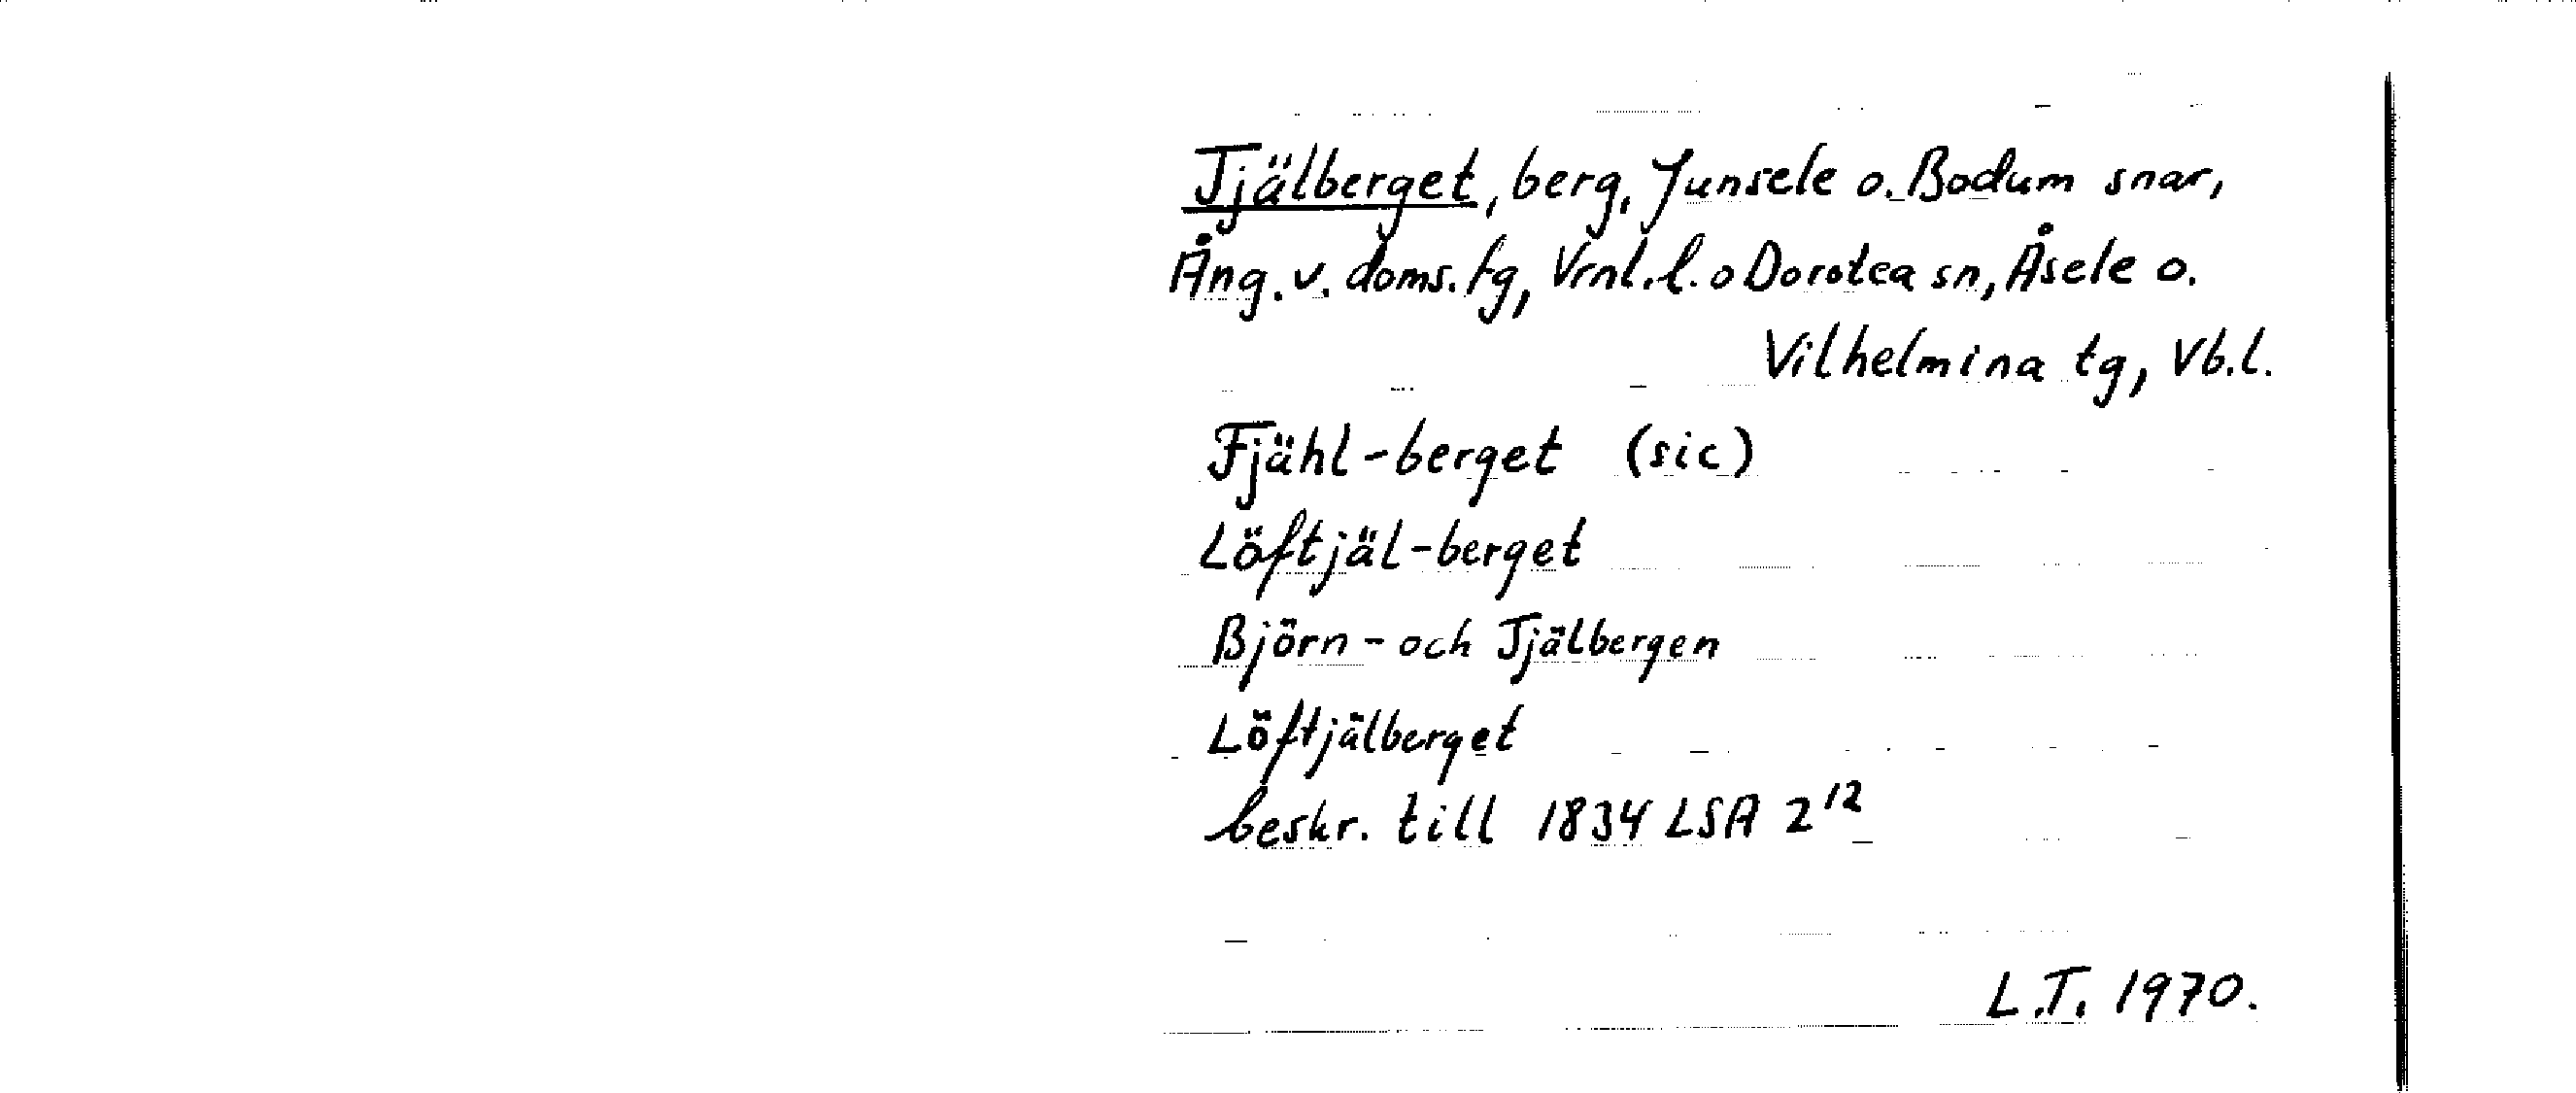 Tjälberget, berg, Junsele o. Bodum snar,
Ång. v. doms. tg, Vrnl. l. o Dorotea sn, Åsele o.
Vilhelmina tg, Vb.l.
Fjähl-berget (sic)
Löftjäl-berget
Björn- och Tjälbergen
Löftjälberget
beskr. till 1834 LSA 2¹²
L.T. 1970.